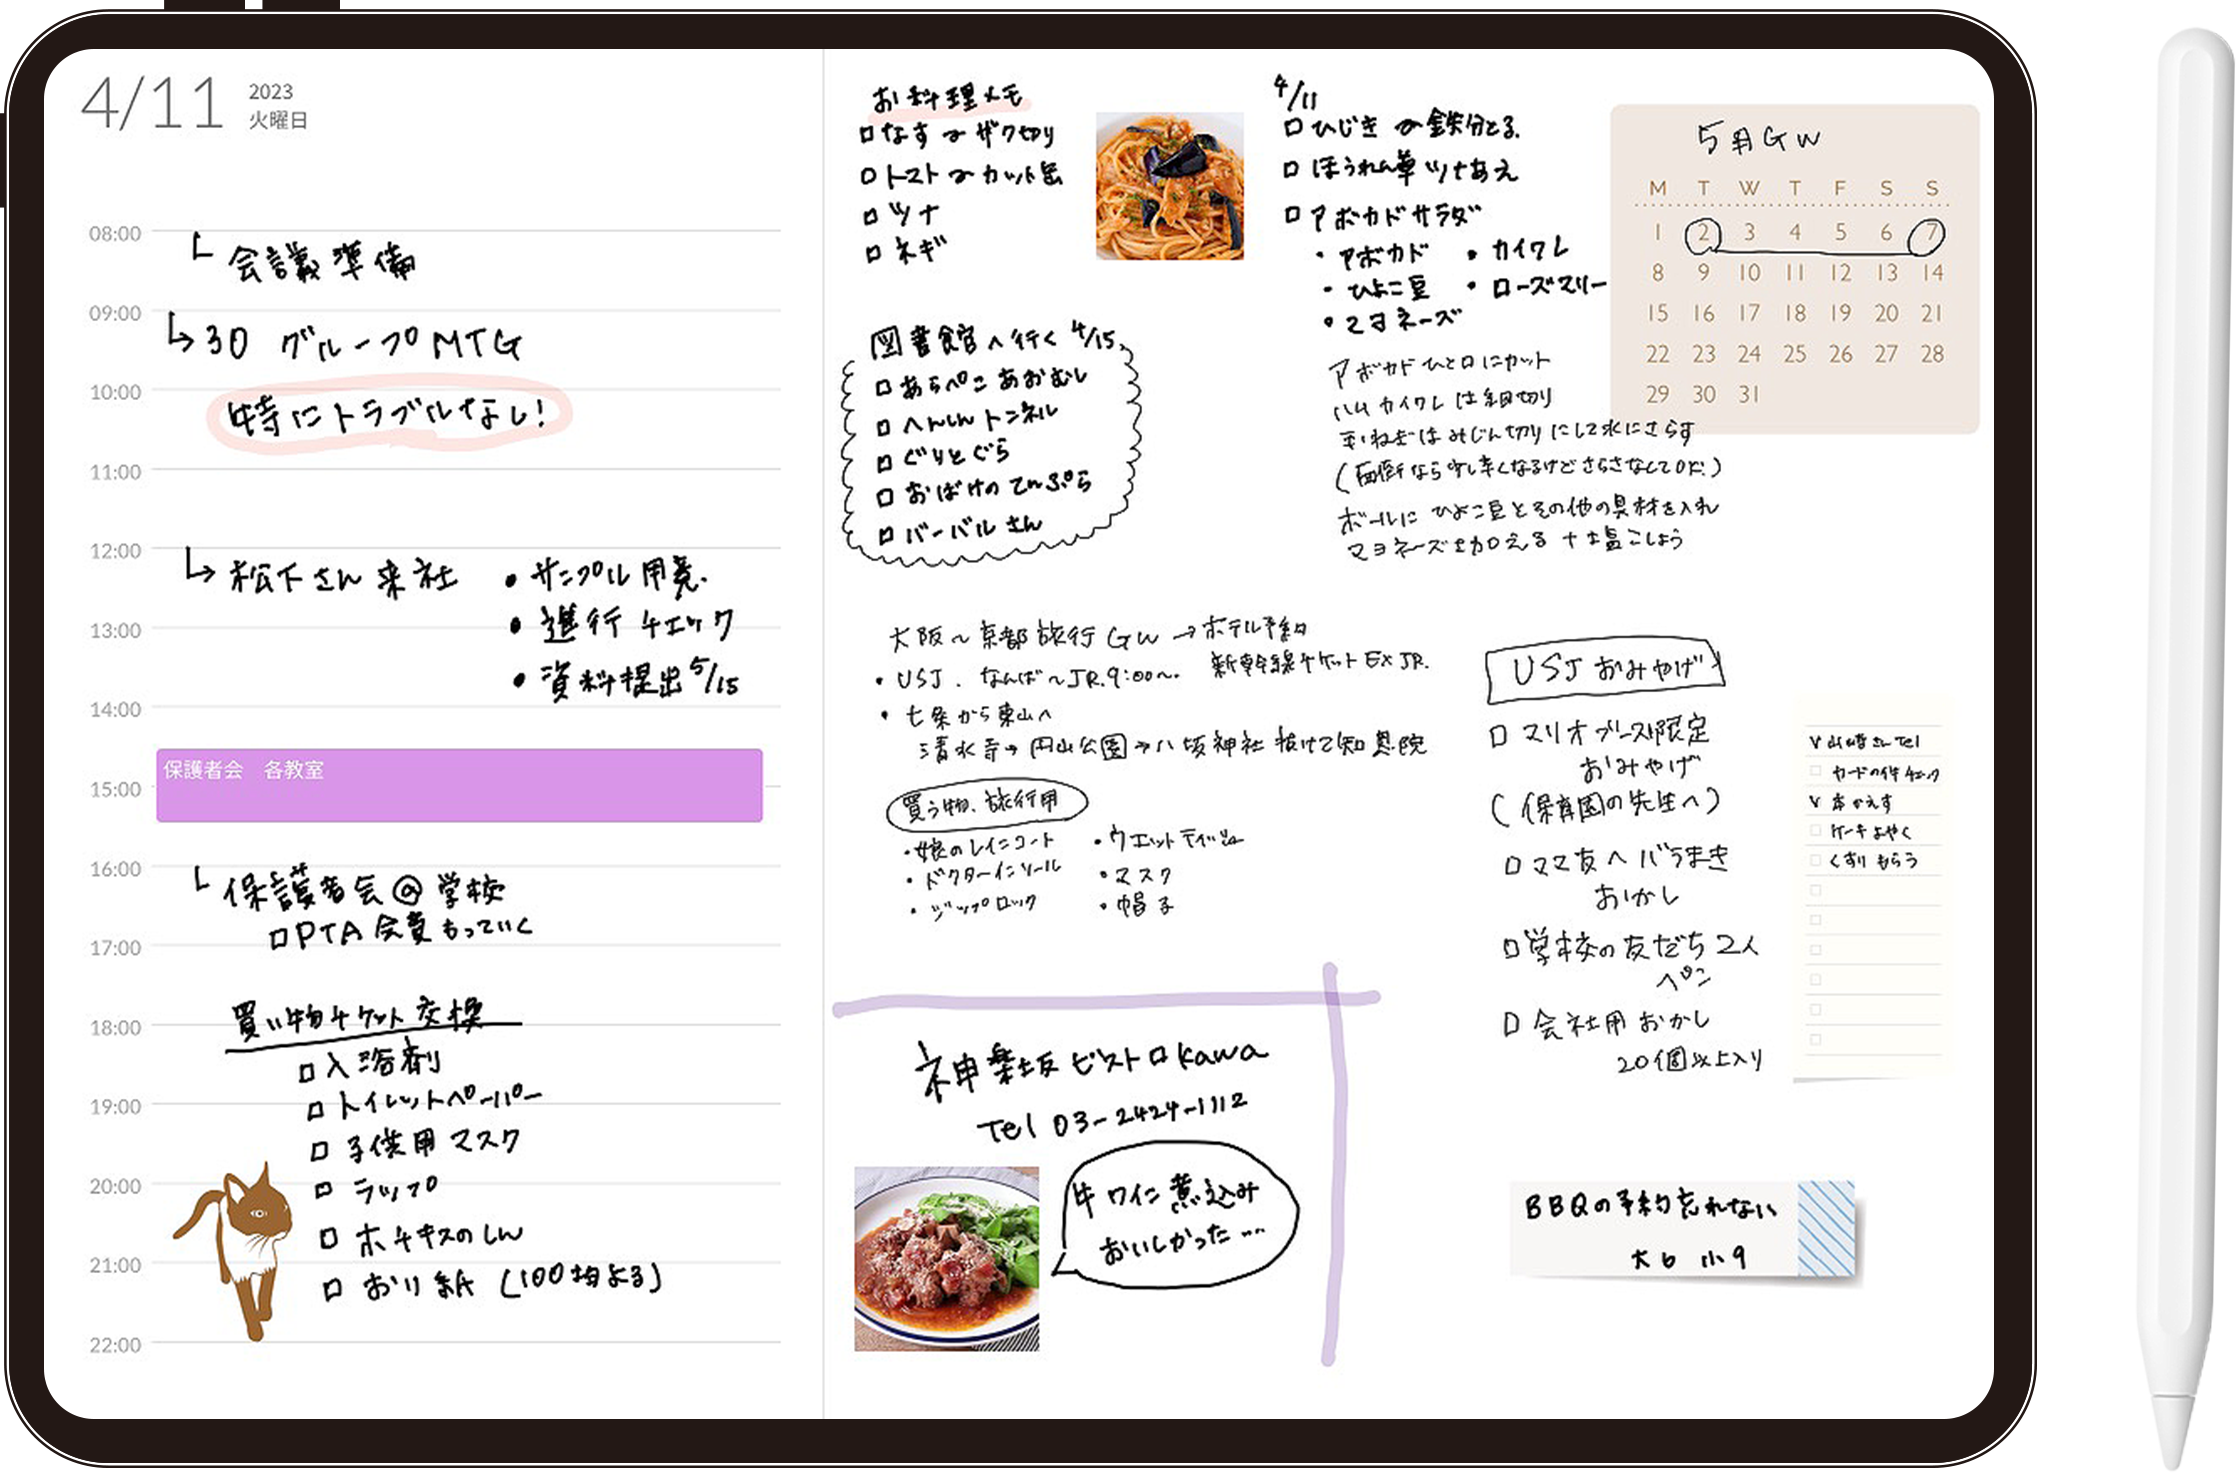 4/11
2023
火曜日
08:00
会議準備
09:00
30 グループMTG
10:00
特にトラブルなし!
11:00
12:00
松下さん来社
・サンプル用意.
13:00
・進行チェック
・資料提出5/15
14:00
保護者会 各教室
15:00
16:00
保護者会@学校
PTA会費もっていく
17:00
買い物チケット交換
18:00
入浴剤
19:00
トイレットペーパー
子供用マスク
20:00
ラップ
ホチキスのしん
21:00
おり紙 (100均よる)
22:00
お料理メモ
なす〜ザク切り
トマト〜カット缶
ツナ
ネギ
4/11
ひじき〜鉄分とる.
ほうれん草ツナあえ
アボカドサラダ
・アボカド ・カイワレ
・ひよこ豆 ・ローズマリー
・マヨネーズ
アボカドひと口にカット
ハム カイワレは細切り
玉ねぎはみじん切りにして水にさらす
(面倒なら少し辛くなるけどさらさなくてOK!)
ボールにひよこ豆とその他の具材を入れ
マヨネーズを加える + 塩こしょう
5月GW
M T W T F S S
1 2 3 4 5 6 7
8 9 10 11 12 13 14
15 16 17 18 19 20 21
22 23 24 25 26 27 28
29 30 31
図書館へ行く 4/15.
あらぺこあおむし
へんしんトンネル
ぐりとぐら
おばけのてんぷら
バーバルさん
大阪〜京都旅行GW→ホテル予約
新幹線チケットEX JR.
・USJ. なんば〜JR.9:00〜.
・七条から東山へ
清水寺→円山公園→八坂神社 抜けて知恩院
買う物、旅行用
・娘のレインコート ・ウエットティッシュ
・ドクターインソール ・マスク
・ジップロック ・帽子
USJ おみやげ
マリオブース限定
おみやげ
(保育園の先生へ)
ママ友へバラまき
おかし
学校の友だち2人
ペン
会社用おかし
20個以上入り
v 山崎さんTel
カードの件チェック
v 本かえす
ケーキよやく
くすりもらう
神楽坂ビストロkawa
Tel 03-2424-1112
牛ワイン煮込み
おいしかった…
BBQの予約忘れない
大6 小9